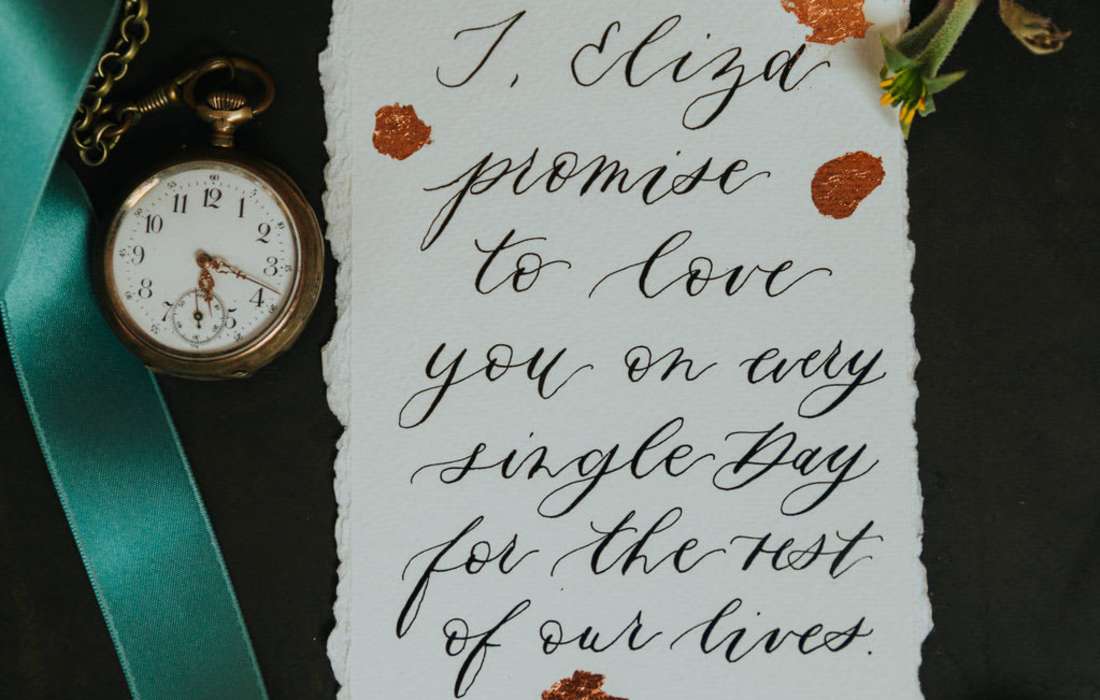 I, Eliza
promise
to love
you on every
single Day
for the rest
of our lives.
60
11 12 1
10 2
9 3
8 4
7 5